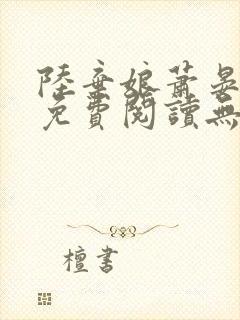 陸棄娘蕭晏
免費閱讀無
檀書